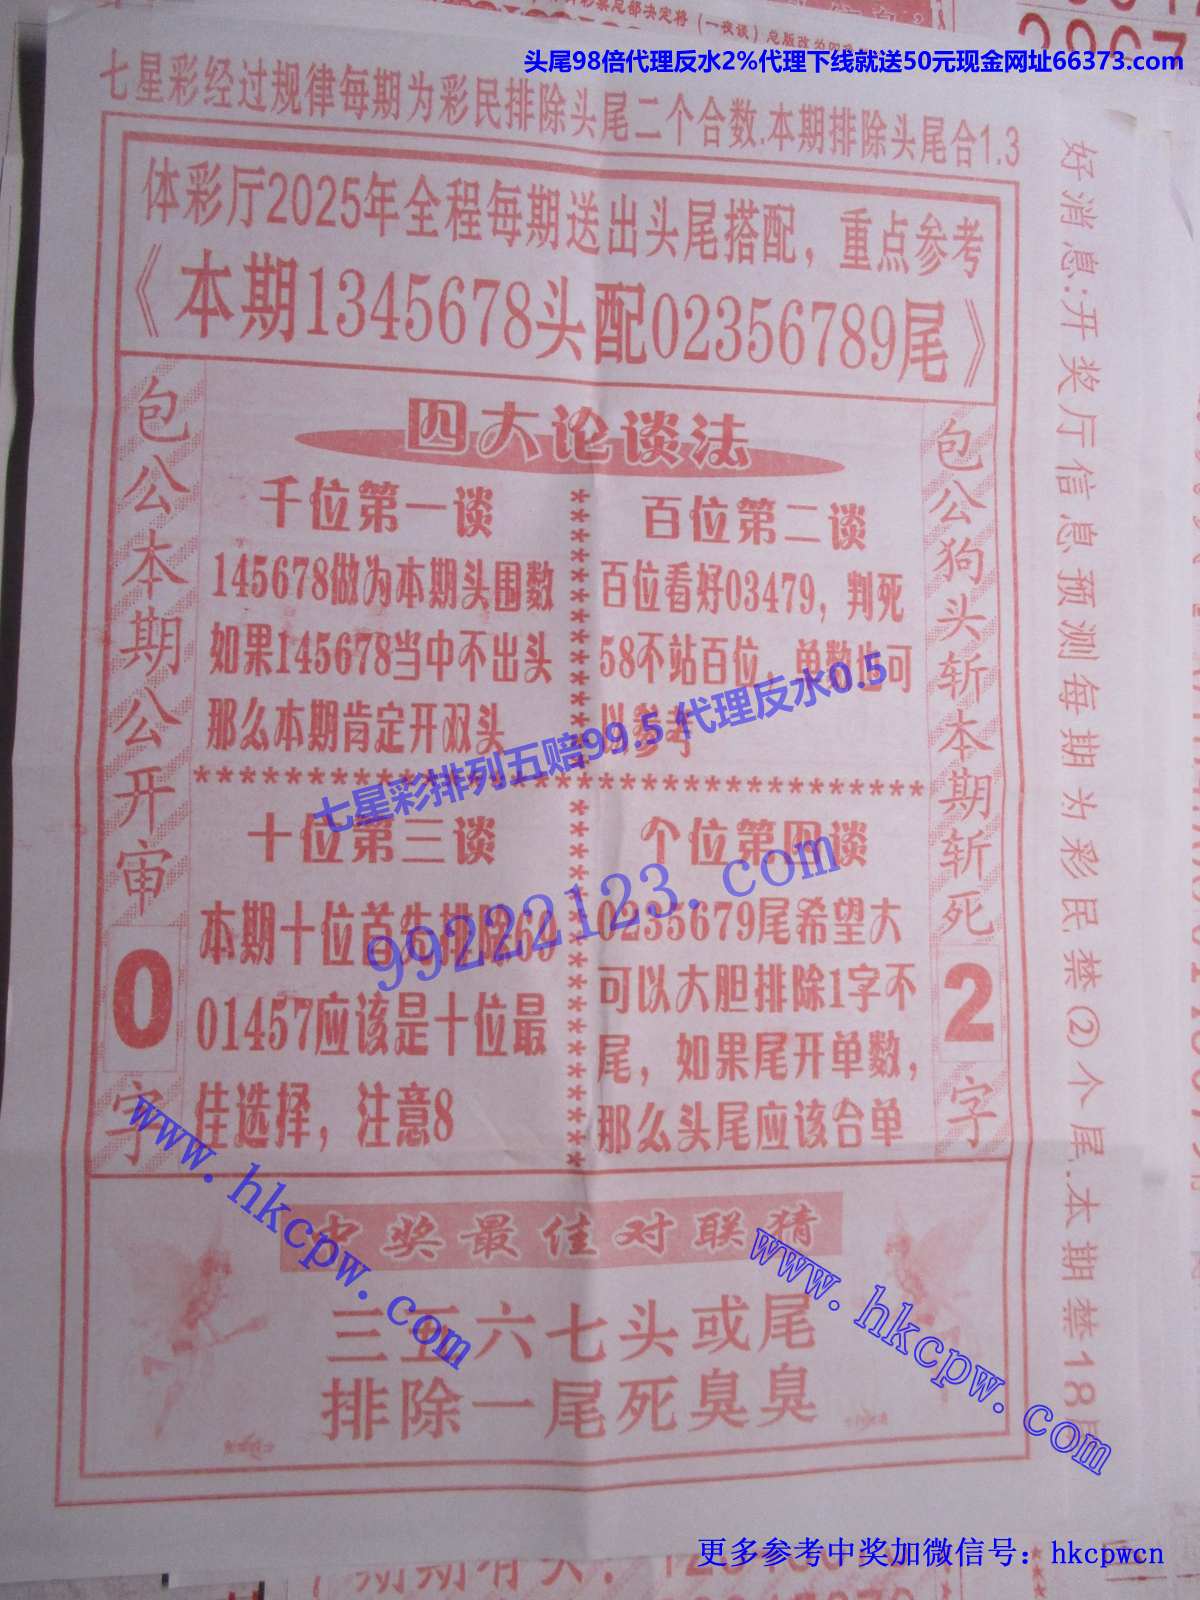 头尾98倍代理反水2%代理下线就送50元现金网址66373.com
七星彩经过规律每期为彩民排除头尾二个合数.本期排除头尾合1.3
体彩厅2025年全程每期送出头尾搭配，重点参考
《本期1345678头配02356789尾》
包公本期公开审0字
四大论谈法
千位第一谈
145678做为本期头围数
如果145678当中不出头
那么本期肯定开双头
百位第二谈
百位看好03479，判死
58不站百位，单数也可
以参考
七星彩排列五赔99.5代理反水0.5
99222123.com
十位第三谈
本期十位首先排除69
01457应该是十位最
佳选择，注意8
个位第四谈
0235679尾希望大
可以大胆排除1字不
尾，如果尾开单数，
那么头尾应该合单
包公狗头斩本期斩死2字
好消息:开奖厅信息预测每期为彩民禁②个尾.本期禁18尾
www.hkcpw.com
www.hkcpw.com
中奖最佳对联猜
三五六七头或尾
排除一尾死臭臭
更多参考中奖加微信号：hkcpwcn